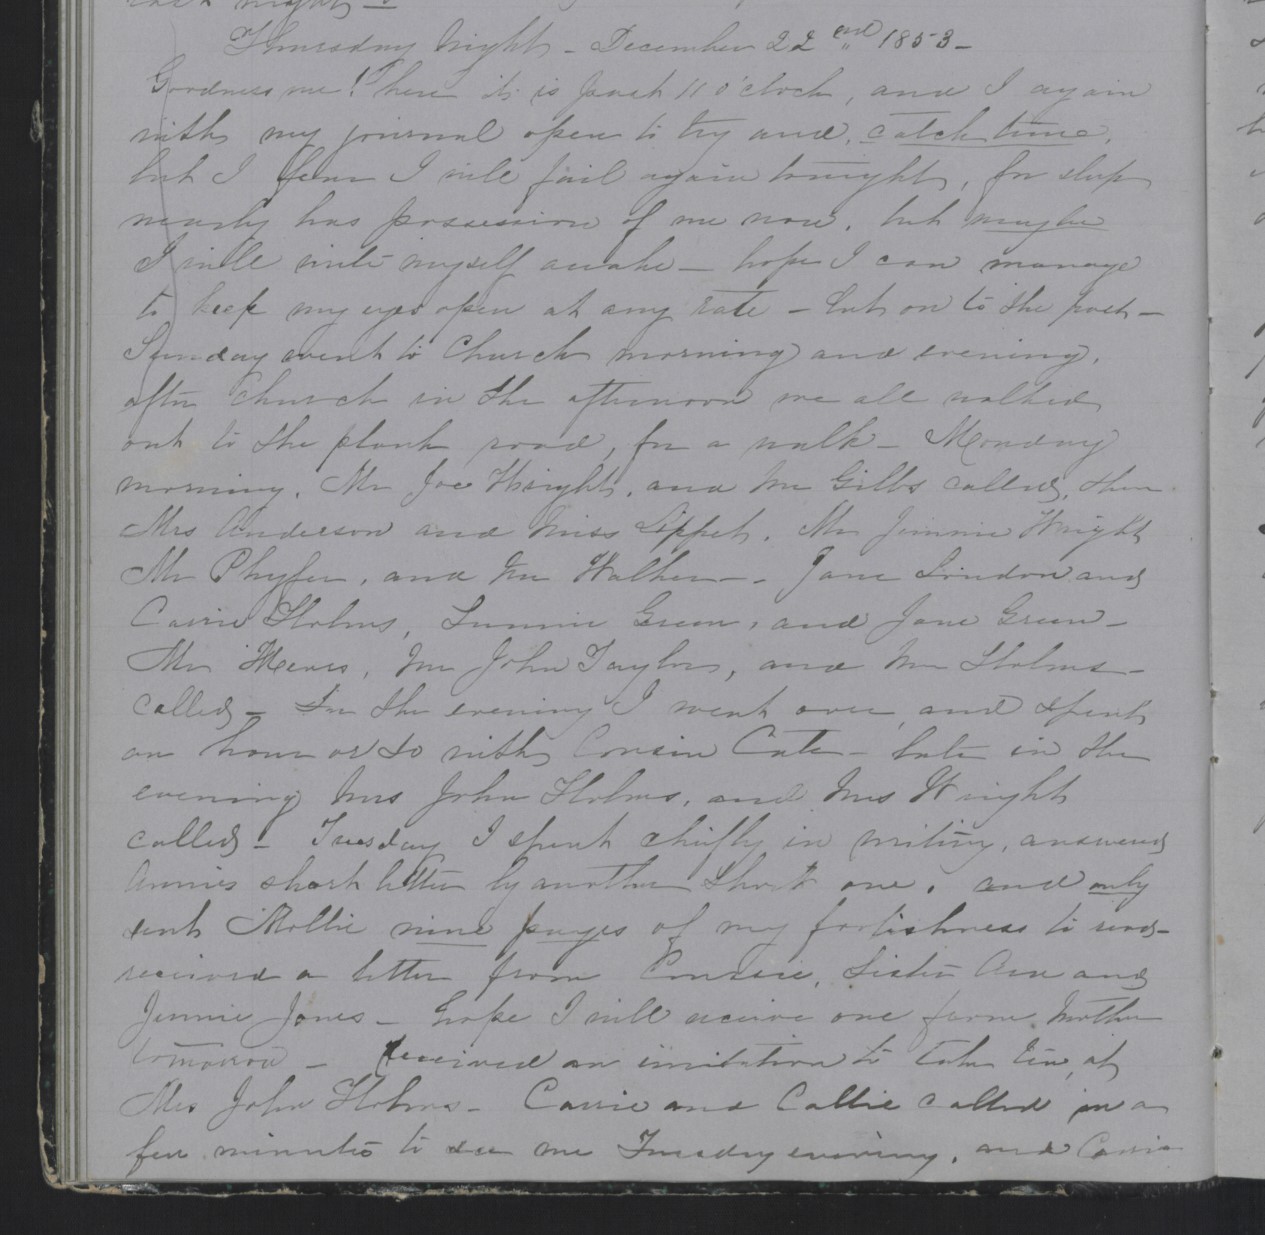 Thursday Night - December 22nd 1853 -
Goodness me! here it is past 11 o'clock, and I again
with my journal open to try and, catch time,
but I fear I will fail again tonight, for sleep
nearly has possession of me now, but maybe
I will write myself awake - hope I can manage
to keep my eyes open at any rate - but on to the past -
Sunday went to Church morning and evening,
after Church in the afternoon we all walked
out to the plank road, for a walk - Monday
morning, Mr Joe Wright, and Mr Gibbs called, then
Mrs Anderson and Miss Lippet, Mr Jimmie Wright
Mr Phyfer, and Mr Walker - Jane London and
Carrie Holms, Lunnie Green, and Jane Green -
Mr Meares, Mr John Taylor, and Mr Holms -
called - In the evening I went over, and spent
an hour or so with Cousin Cate - late in the
evening Mrs John Holms, and Mrs Wright
called - Tuesday I spent chiefly in writing, answered
Annies short letter by another short one, and only
sent Mollie nine pages of my foolishness to read -
received a letter from Connie, Sister Ann and
Jennie Jones - hope I will receive one from Mother
tomorrow - Received an invitation to take tea, at
Mrs John Holms - Carrie and Callie called in a
few minutes to see me Tuesday evening, and Carrie